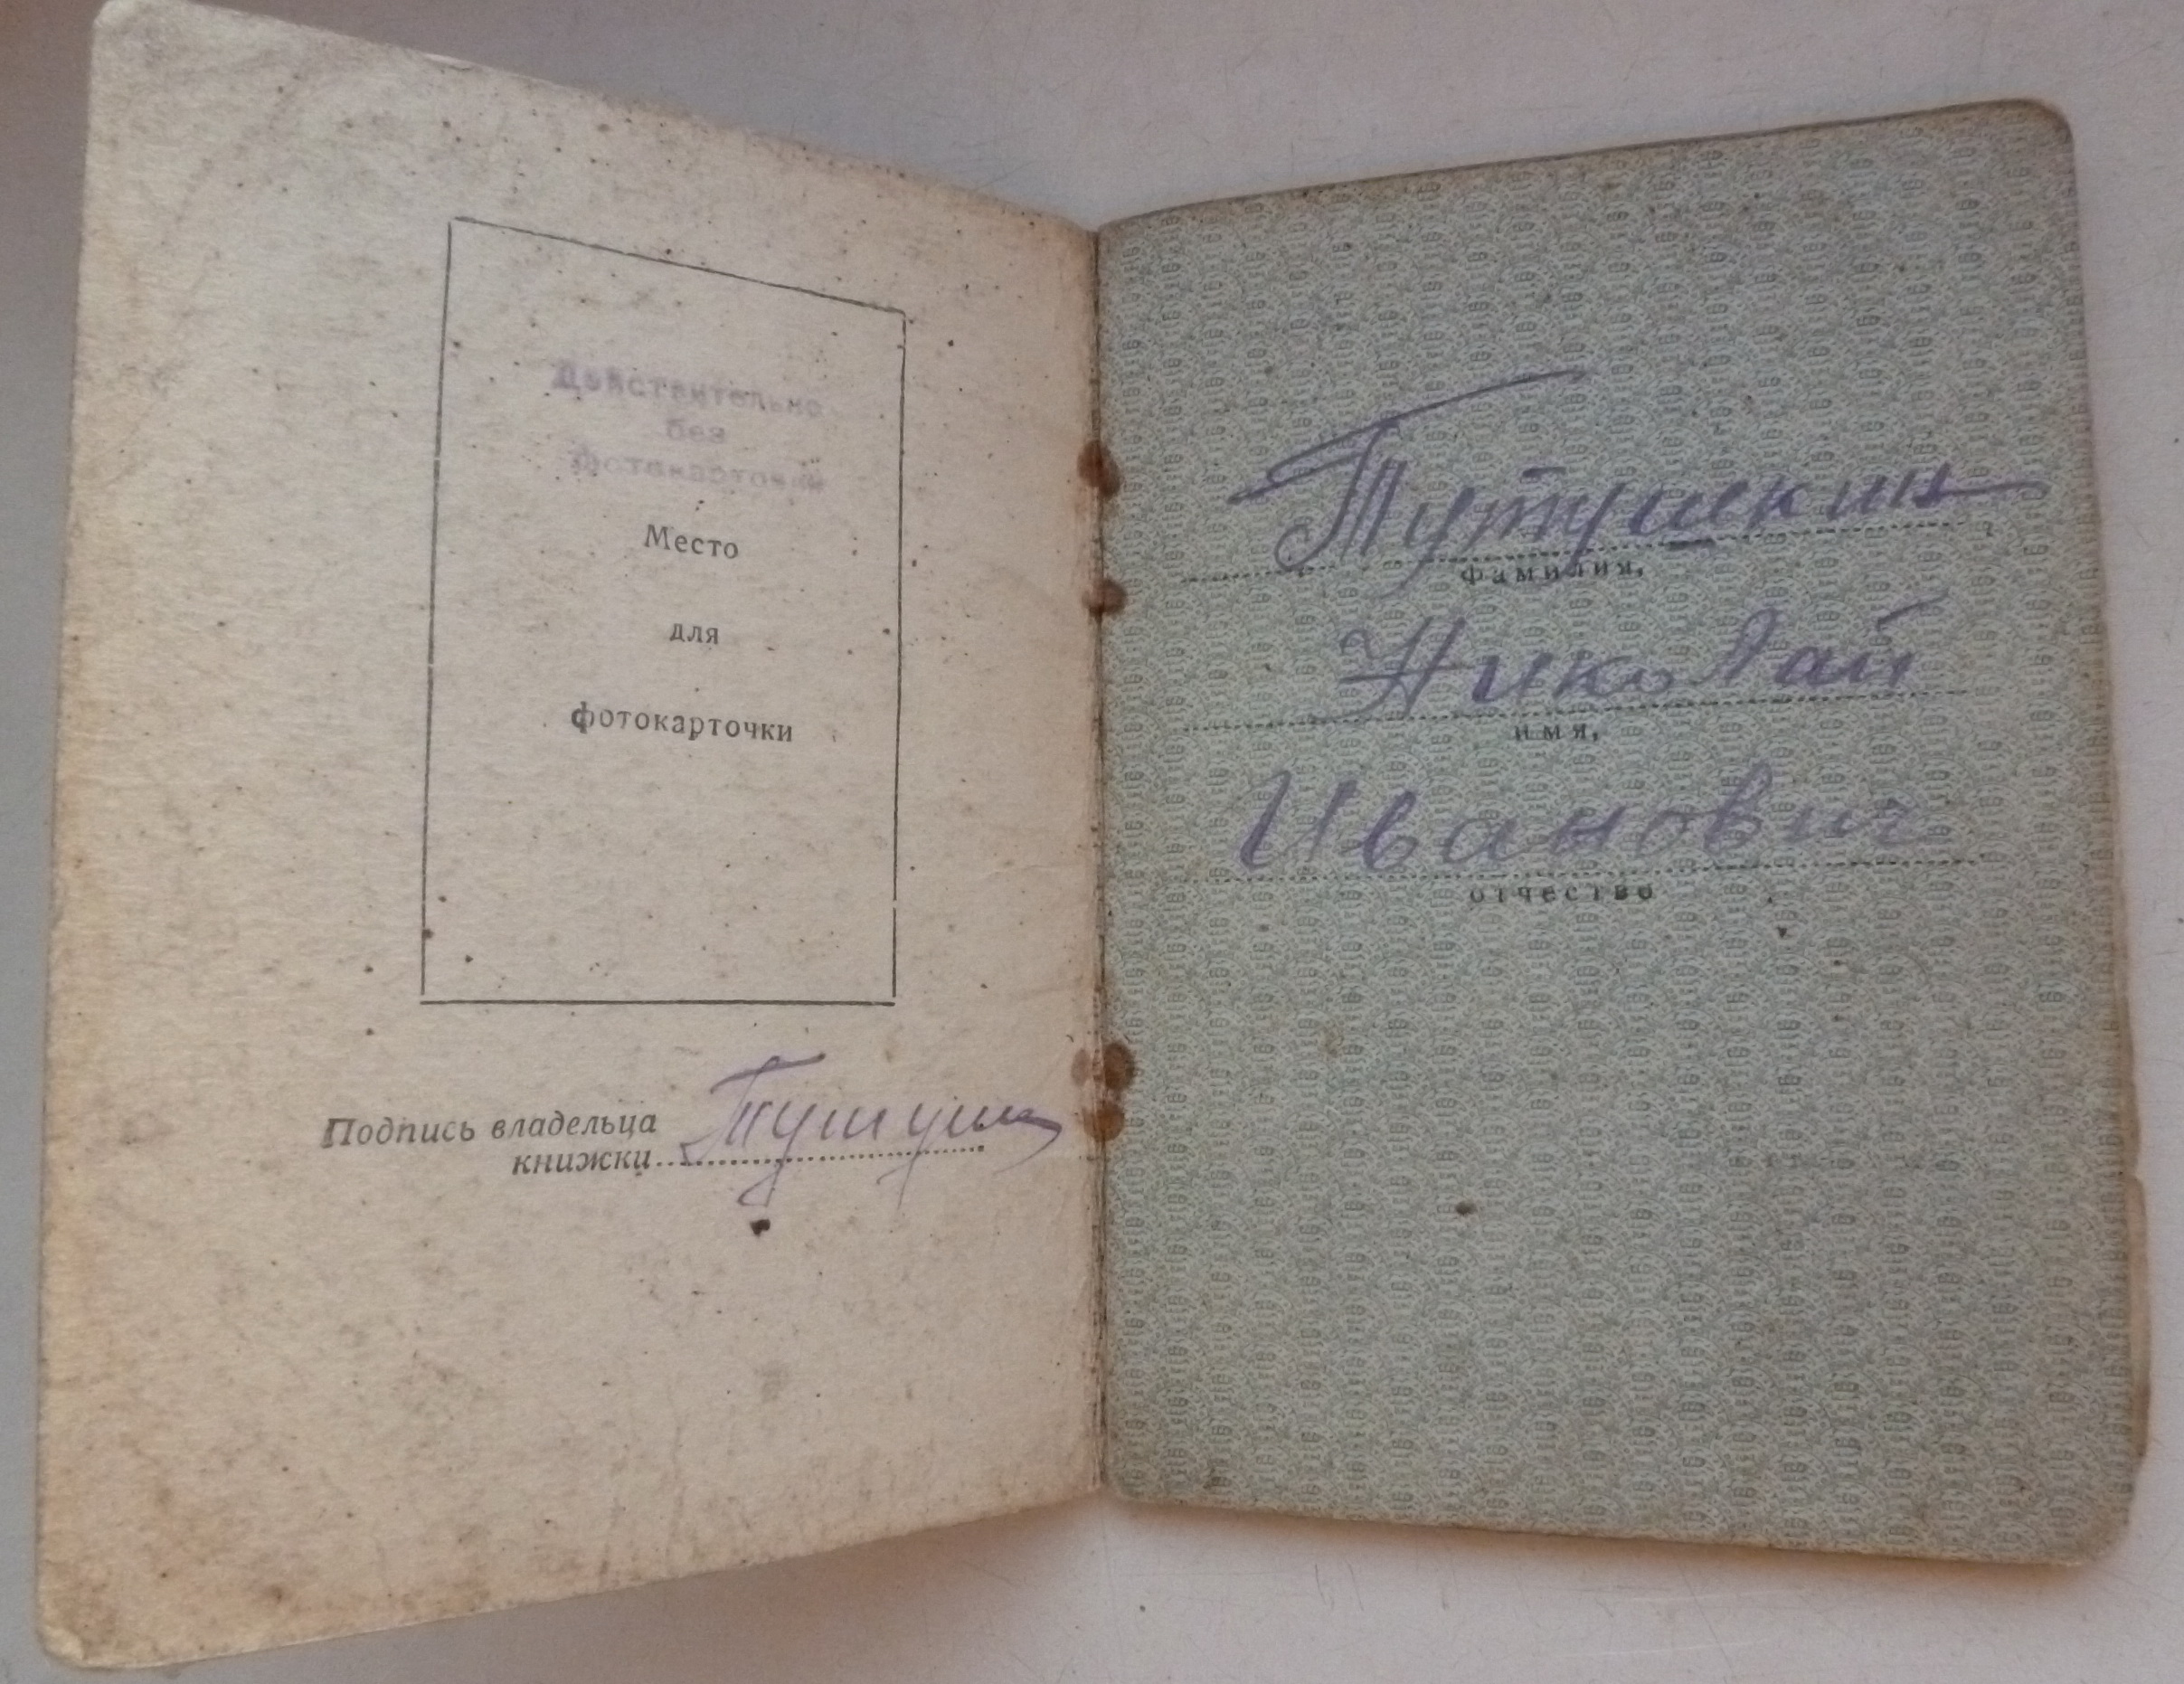 Действительно
без
фотокарточки
Место
для
фотокарточки
Подпись владельца
книжки
Тутушкин
фамилия,
Николай
имя,
Иванович
отчество